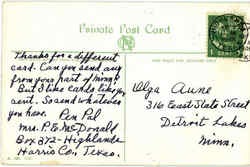 Private Post Card
Thanks for a different
card. Can you send any
from your part of Minn?
But I like cards like you
sent. So send whatever
you have.
Pen Pal
Mrs. P. E. McDonald
Box 872-Highlands
Harris Co., Texas.
Olga Aune
316 East State Street
Detroit Lakes
Minn.